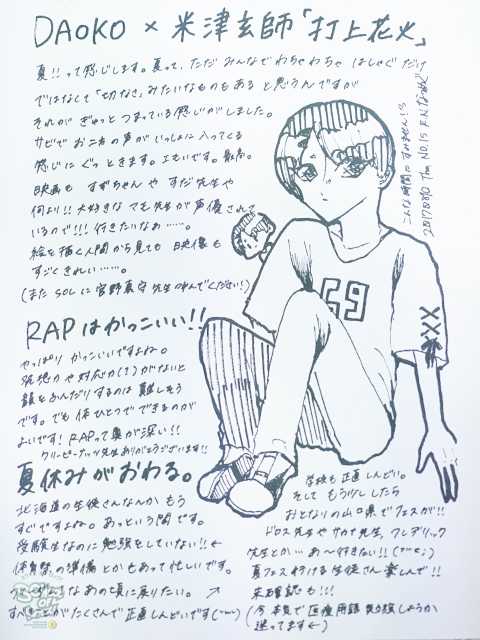 DAOKO × 米津玄師「打上花火」
夏!!って感じします。夏って、ただみんなでわちゃわちゃはしゃぐだけ
ではなくて「切なさ」みたいなものもあると思うんですが
それがぎゅっとつまっている感じがしました。
サビでお二方の声がいっしょに入ってくる
感じにぐっときます。エモいです。最高。
映画もすずちゃんやすだ先生や
何より!!大好きなマモ先生が声優されて
いるので!!!行きたいなあ……。
絵を描く人間から見ても映像も
すごくきれい……。
(またSOLに宮野真守先生呼んでください!)
こんな時間にすみません!?
20170810 Thu No.15 R.N.なめく
69
RAPはかっこいい!!
やっぱりかっこいいですよね。
発想力や対応力(?)がないと
韻をふんだりするのは難しそう
です。でも体ひとつでできるのが
よいです!RAPって奥が深い!!
クリーピーナッツ先生ありがとうございます!!
夏休みがおわる。
北海道の生徒さんなんかもう
すぐですよね。あっという間です。
受験生なのに勉強をしていない!!←
体育祭の準備とかもあって忙しいです。
なあの頃に戻りたい。
すべきことがたくさんで正直しんどいです
学校も正直しんどい。
そしてもう少ししたら
おとなりの山口県でフェスが!!
ドロス先生やサカナ先生、フレデリック
先生とか…あ〜行きたい!!
夏フェス行ける生徒さん楽しんで!!
未確認も!!!
(今本気で医療用語勉強しようか
迷ってます←)